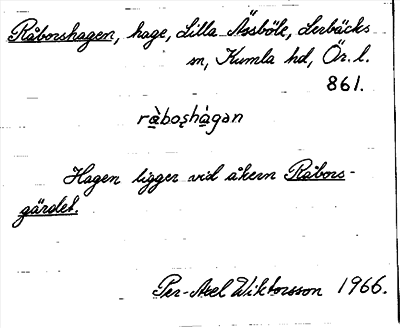 Råborshagen, hage, Lilla Åssböle, Lerbäcks
sn, Kumla hd, Ör. l.
861.
rὰboʂhὰgən
Hagen ligger vid åkern Råbors-
gärdet.
Per-Axel Wiktorsson 1966.